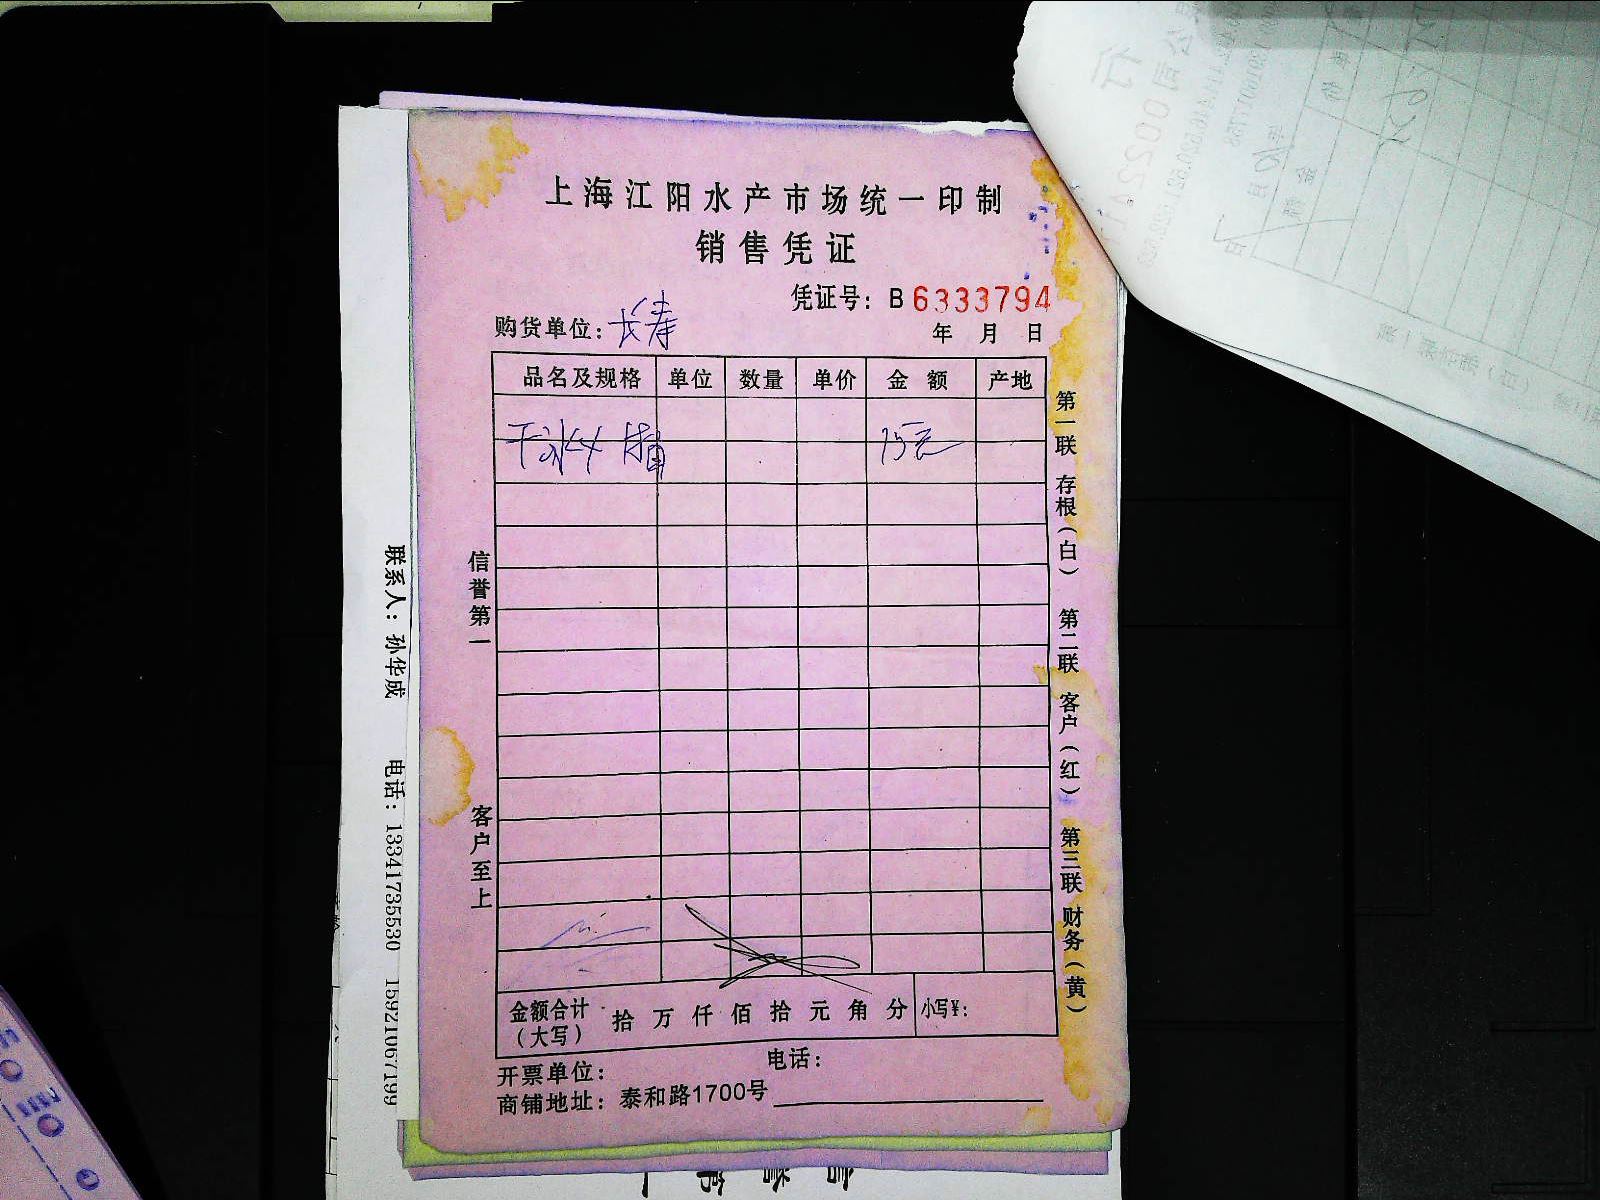 上海江阳水产市场统一印制
销售凭证
凭证号：B 6333794
购货单位：长寿
年 月 日
品名及规格 单位 数量 单价 金 额 产地
干冰 15元
金额合计（大写） 拾 万 仟 佰 拾 元 角 分 小写¥：
开票单位： 电话：
商铺地址：泰和路1700号
信誉第一 客户至上
第一联 存根（白） 第二联 客户（红） 第三联 财务（黄）
联系人：孙华成 电话：13341735530 15921067199